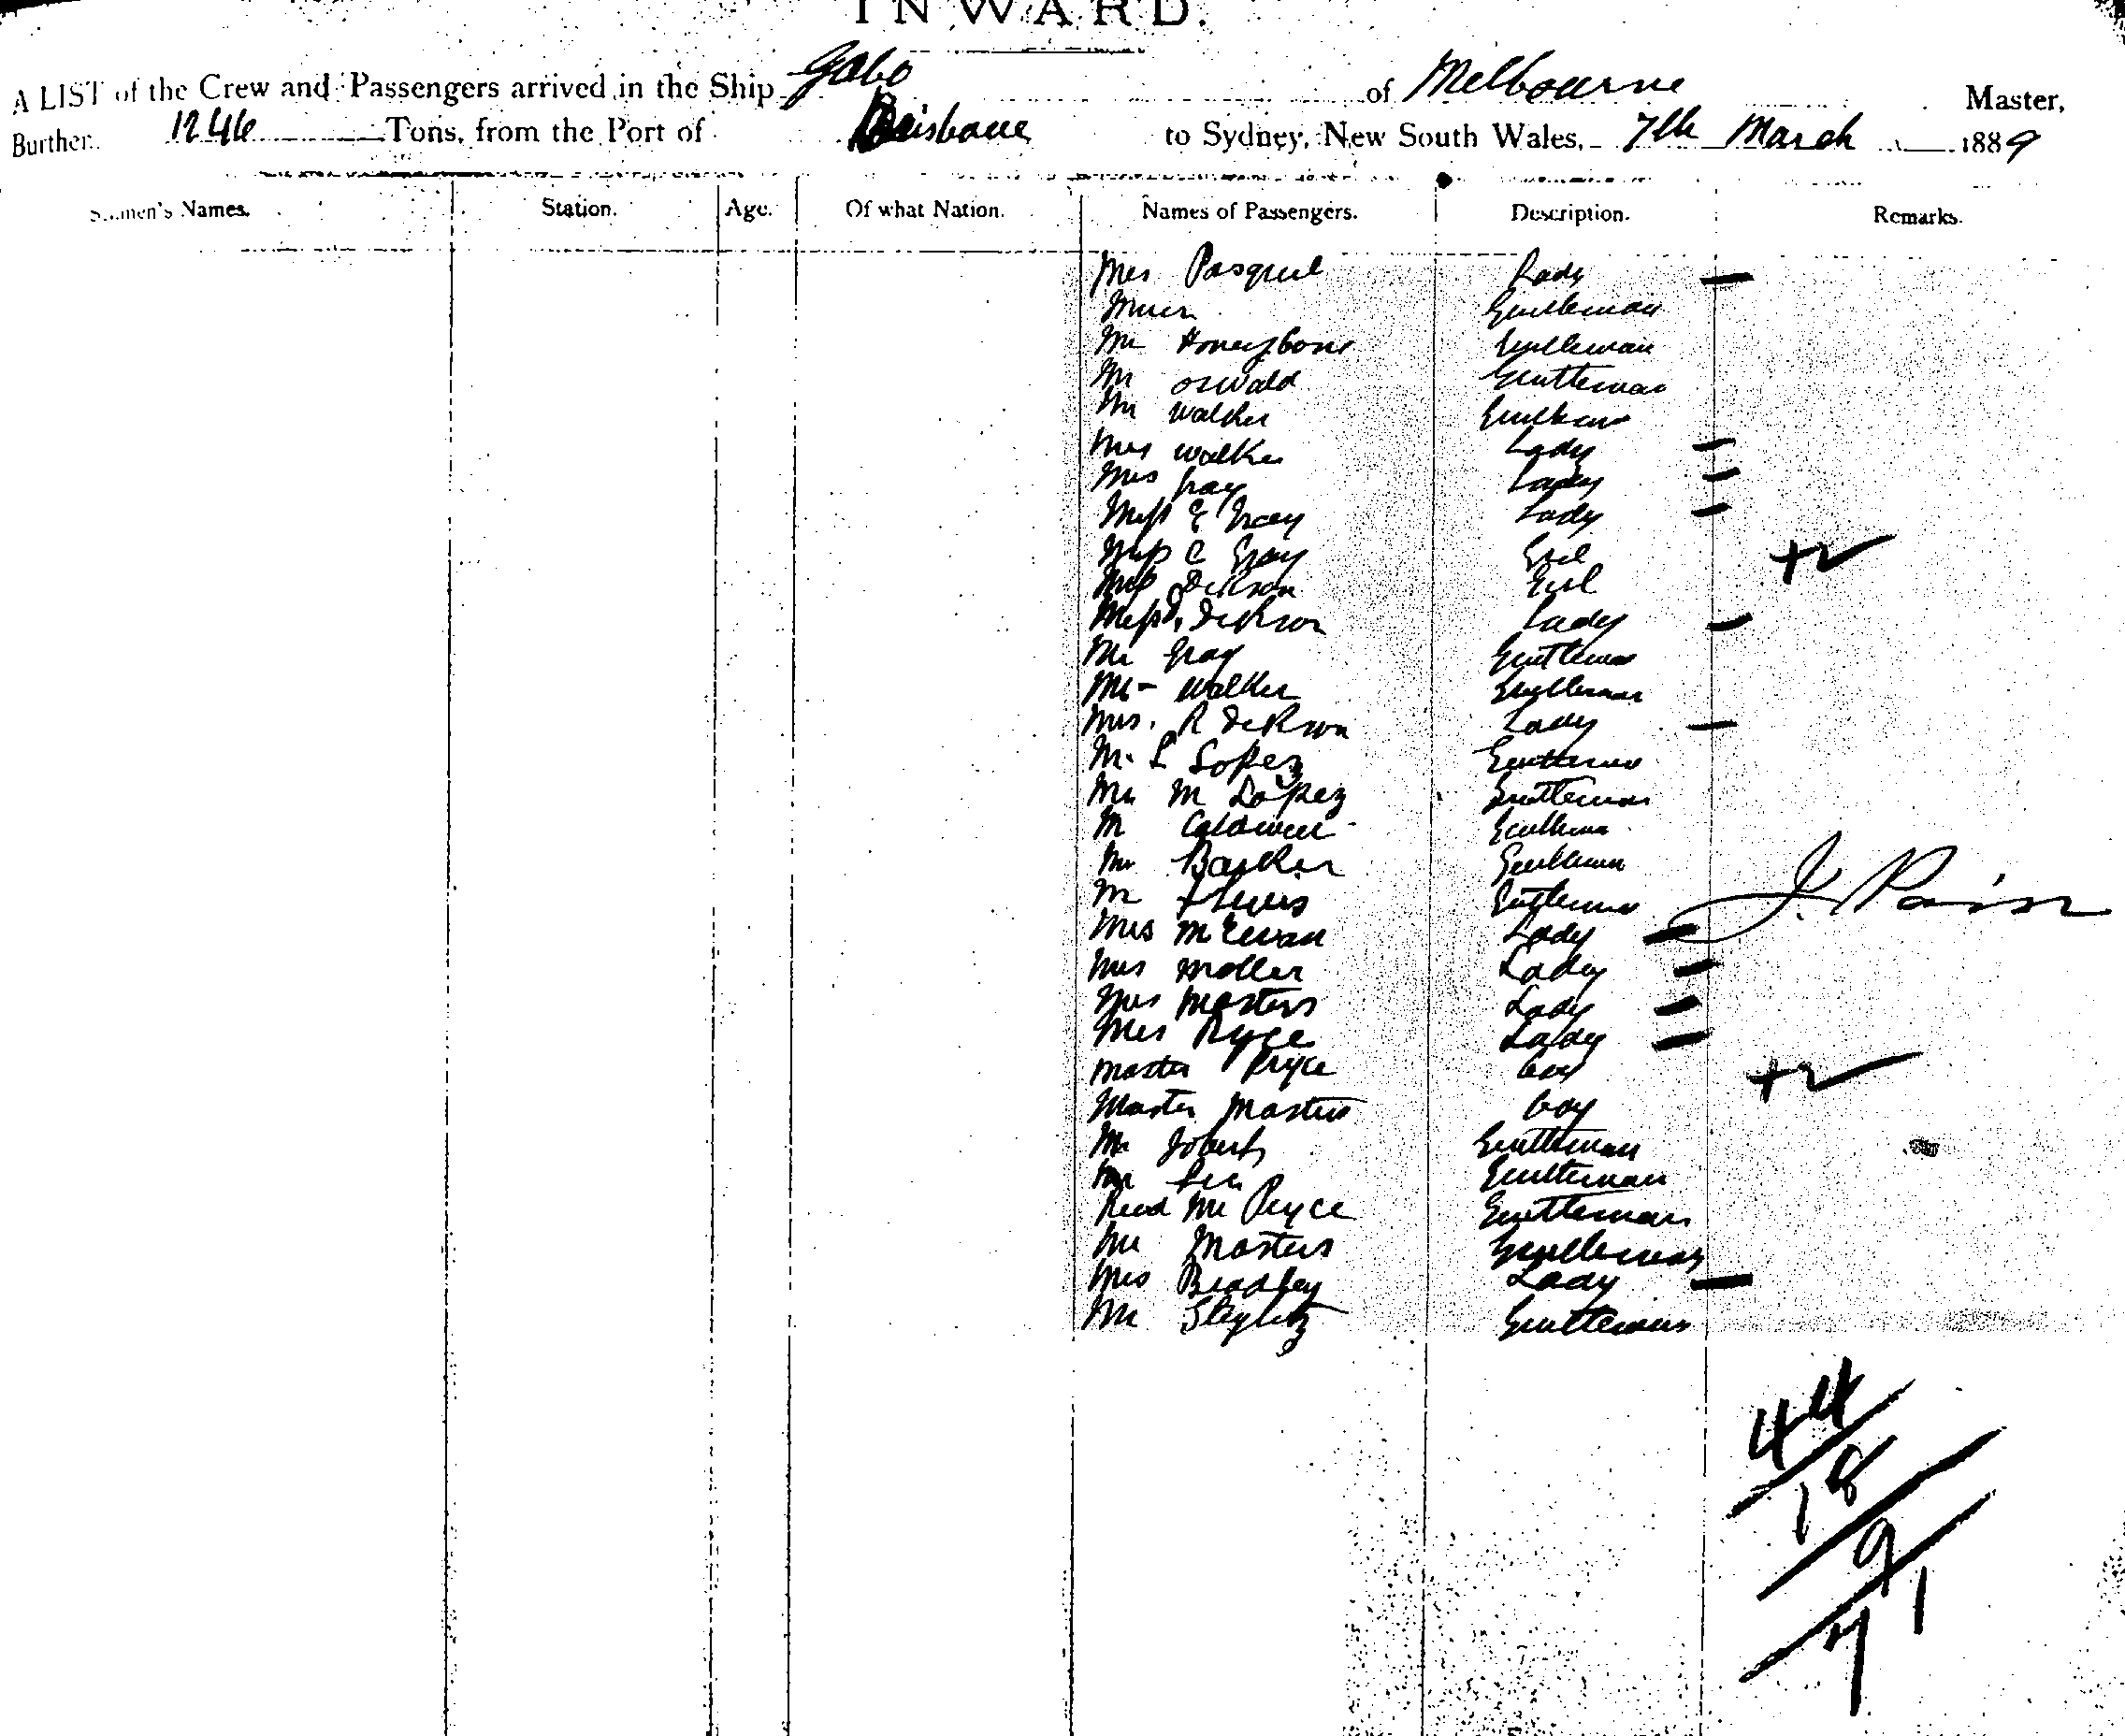 INWARD.
A LIST of the Crew and Passengers arrived in the Ship Gabo of Melbourne Master,
Burthen 1246 Tons, from the Port of Brisbane to Sydney, New South Wales, 7th March 1889
Seamen's Names. Station. Age. Of what Nation. Names of Passengers. Description. Remarks.
Mrs Lady
Gentleman
Mr Honeybone Gentleman
Mr Oswald Gentleman
Mr Walker Gentleman
Mrs Walker Lady
Mrs Gray Lady
Miss E Gray Lady
Miss C Gray Girl +2
Miss Dickson Girl
Miss Dickson Lady
Mr Gray Gentleman
Mr Walker Gentleman
Mrs. R Dickson Lady
Mr. L Lopez Gentleman
Mr M Lopez Gentleman
Mr Caldwell Gentleman
Mr Barker Gentleman
Mr Gentleman
Mrs McEwan Lady
Mrs Moller Lady
Mrs Masters Lady
Mrs Pryce Lady
Master Pryce boy +2
Master Masters boy
Mr Gentleman
Mr Gentleman
Revd Mr Pryce Gentleman
Mr Masters Gentleman
Mrs Bradley Lady
Mr Steglitz Gentleman
44
18
9
71